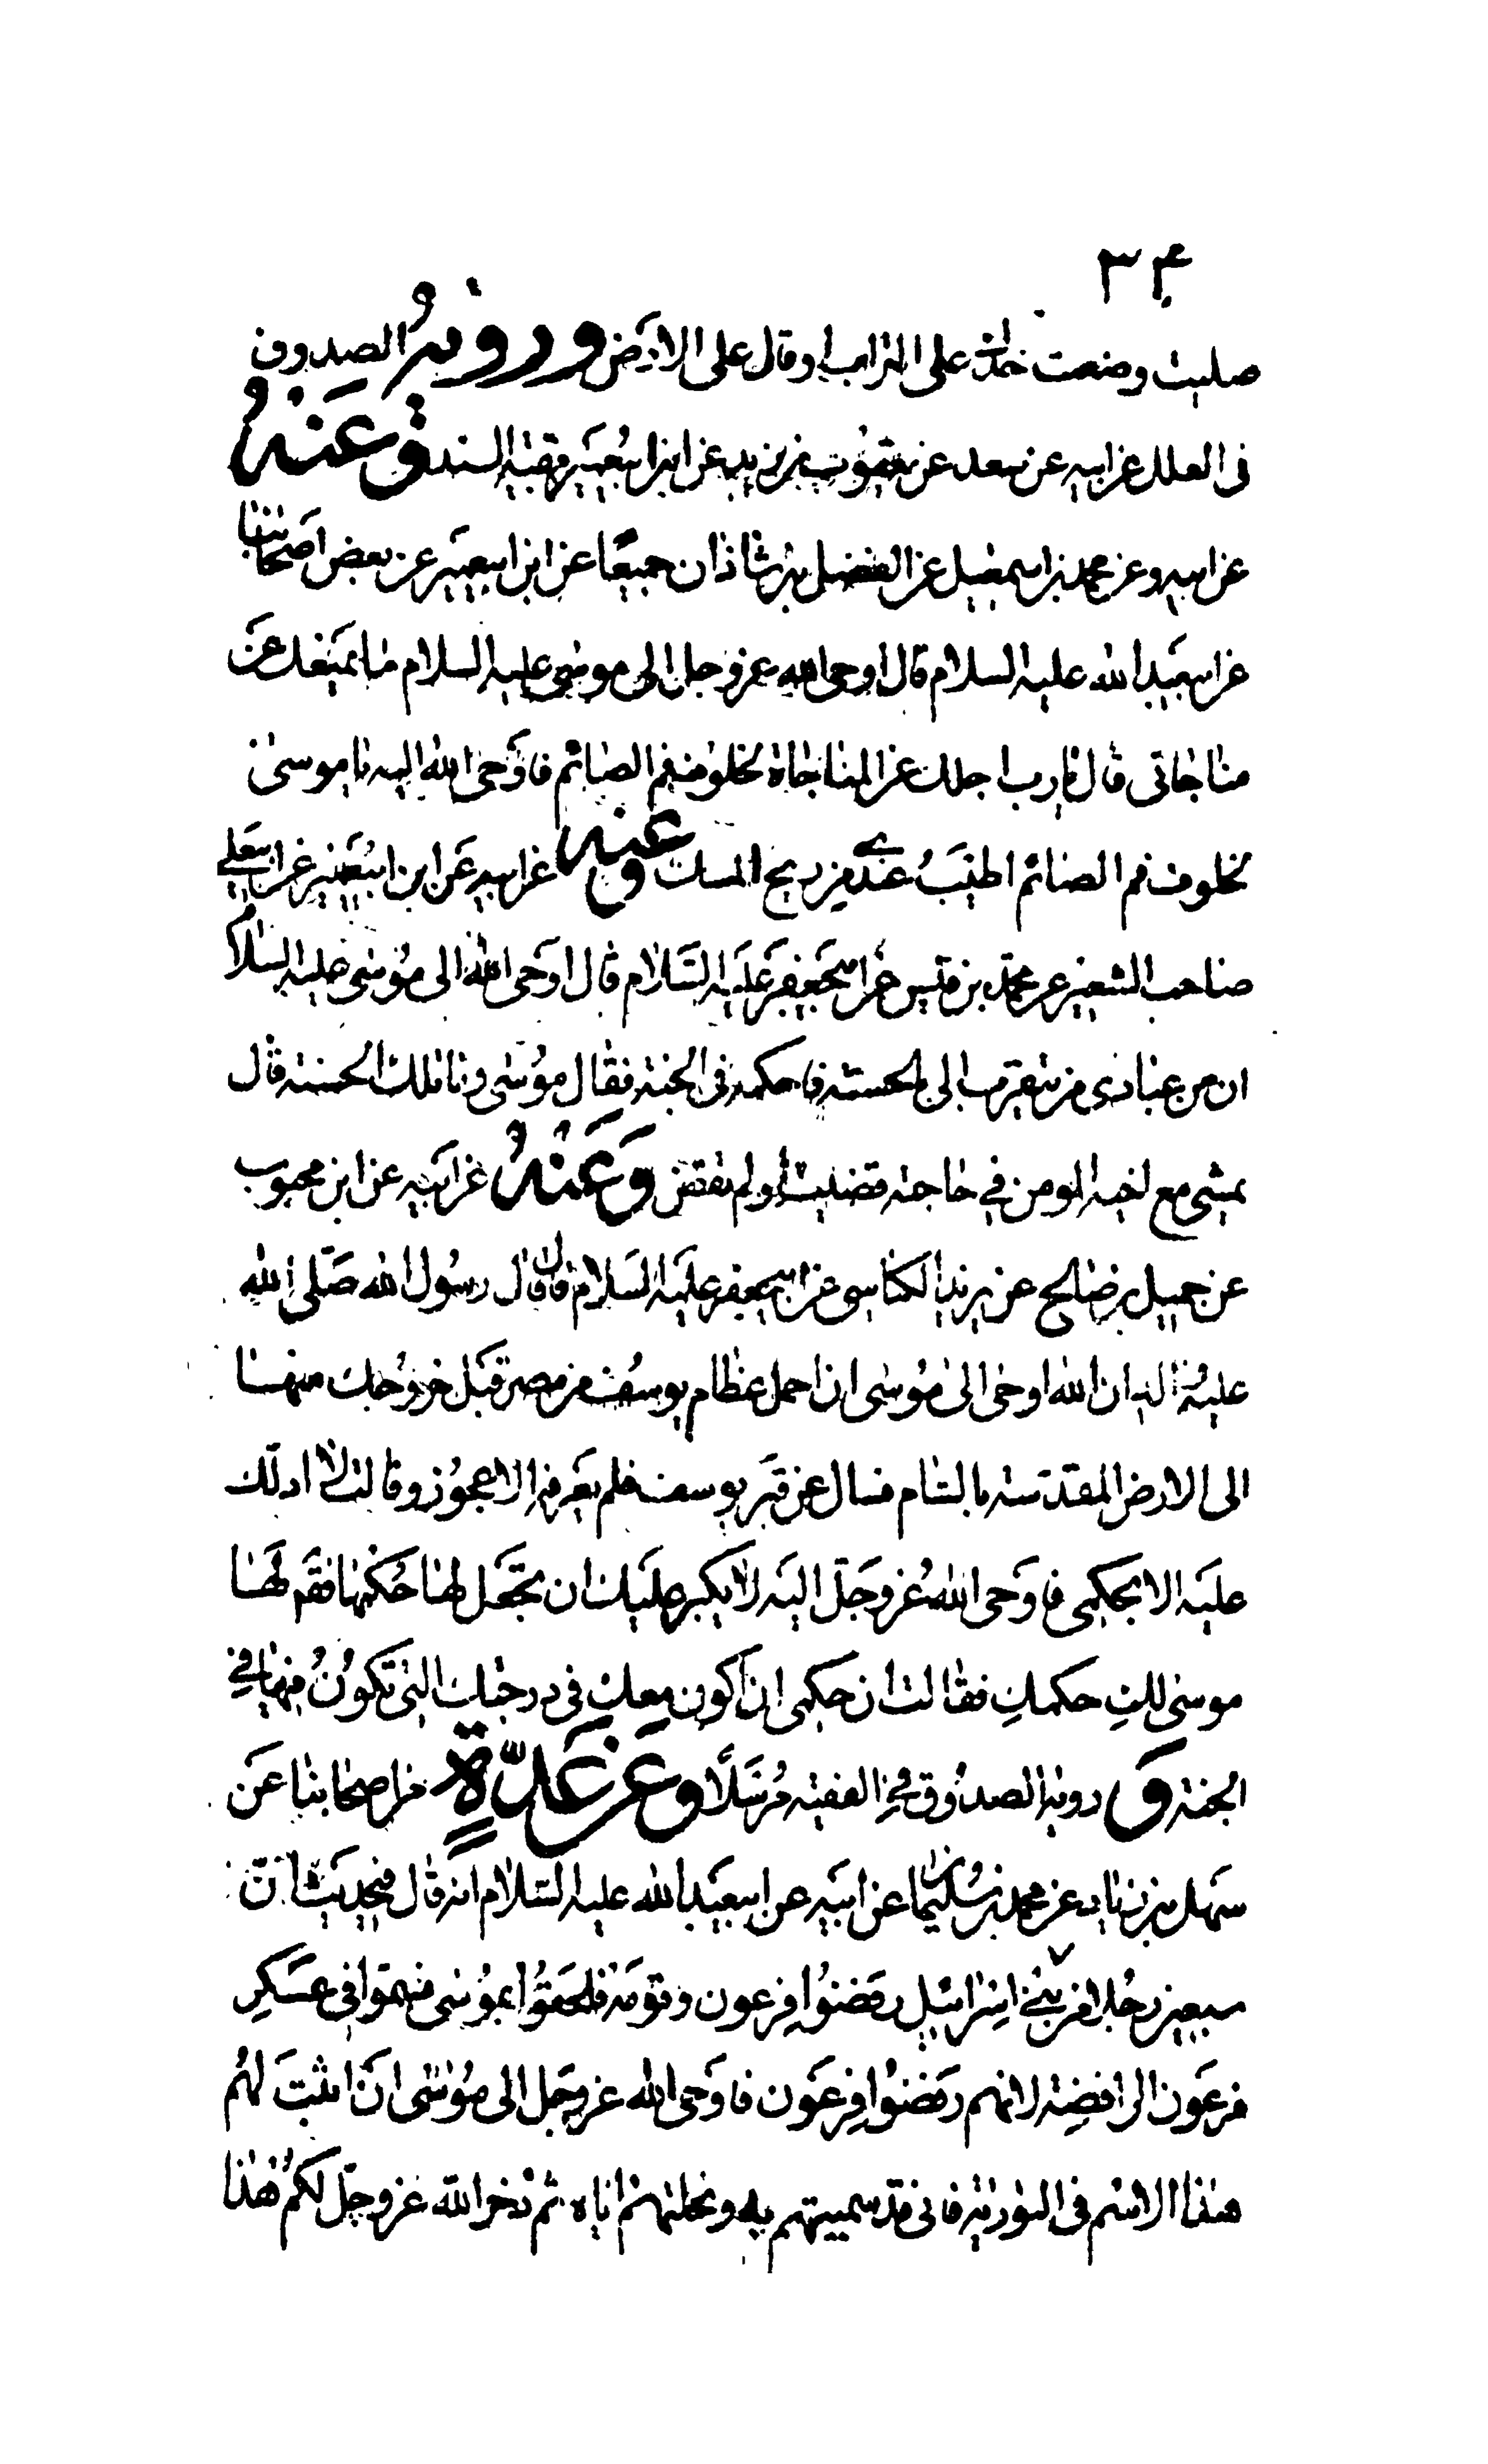 ٣٤
صليت وضعت خدك على التراب او قال على الارض وروٰيهُ الصدوق
فى العلل عن ابيه عن سعد عن يعقوب بن يزيد عن ابن ابيعمير بقية السند وَعَنهُ
عن ابيه وعن محمد بن اسمعيل عن الفضل بن شاذان جميعًا عن ابن ابيعمير عن بعض اصحابنا
عن ابيعبد الله عليه السلام قال اوحى الله عز وجل الى موسى عليه السلام ما يمنعك عن
مناجاتى قال يا رب اجلك عن المناجاة لخلوف فم الصائم فاوحى الله اليه يا موسى
لخلوف فم الصائم اطيب عندى من ريح المسك وعنه عن ابيه عن ابن ابيعمير عن ابيعلى
صاحب الشعير عن محمد بن قيس عن ابيجعفر عليه السلام قال اوحى الله الى موسى عليه السلام
ان من عبادى من يتقرب الى بالحسنة فاحكمه فى الجنة فقال موسى وما تلك الحسنة قال
يمشى مع اخيه المومن في حاجته قضيت او لم تقض وَعَنهُ عن ابيه عن ابن محبوب
عن جميل بن صالح عن يزيد الكناسى عن ابيجعفر عليه السلام قال قال رسول الله صلى الله
عليه واله ان الله اوحى الى موسى ان احمل عظام يوسف من مصر قبل خروجك منها
الى الارض المقدسة بالشام فسال عن قبر يوسف فلم يعرفه الا عجوز وقالت لا ادلك
عليه الا بحكمى فاوحى الله عز وجل اليه لا يكبر عليك ان تجعل لها حكمها فقَم لها
موسى لكِ حكمكِ فقالت ان حكمى ان اكون معك فى درجتك التى تكونُ فيها في
الجنة وَ رويه الصدوق في الفقيه مُرسَلًا وعَن عَدّةٍ من اصحابنا عَن
سهل بن زياد عن محمد بن سُليمان عن ابيه عن ابيعبد الله عليه السلام انه قال في حديث انّ
سبعين رجلا من بني اسرائيل رفضوا فرعون وقومه فلحقوا بموسى فسموا فى عسكرِ
فرعون الرافضة لانهم رفضوا فرعون فاوحى الله عز وجل الى موسى ان اثبت لهُم
هذا الاسم فى التورية فانى قد سميتهم به ونحلتهم اياه ثم ذخر الله عز وجل لكم هذا